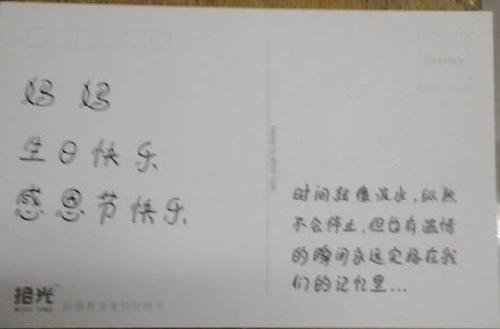 妈妈
生日快乐
感恩节快乐
时间就像流水,纵然
不会停止,但总有温情
的瞬间永远定格在我
们的记忆里...
拾光